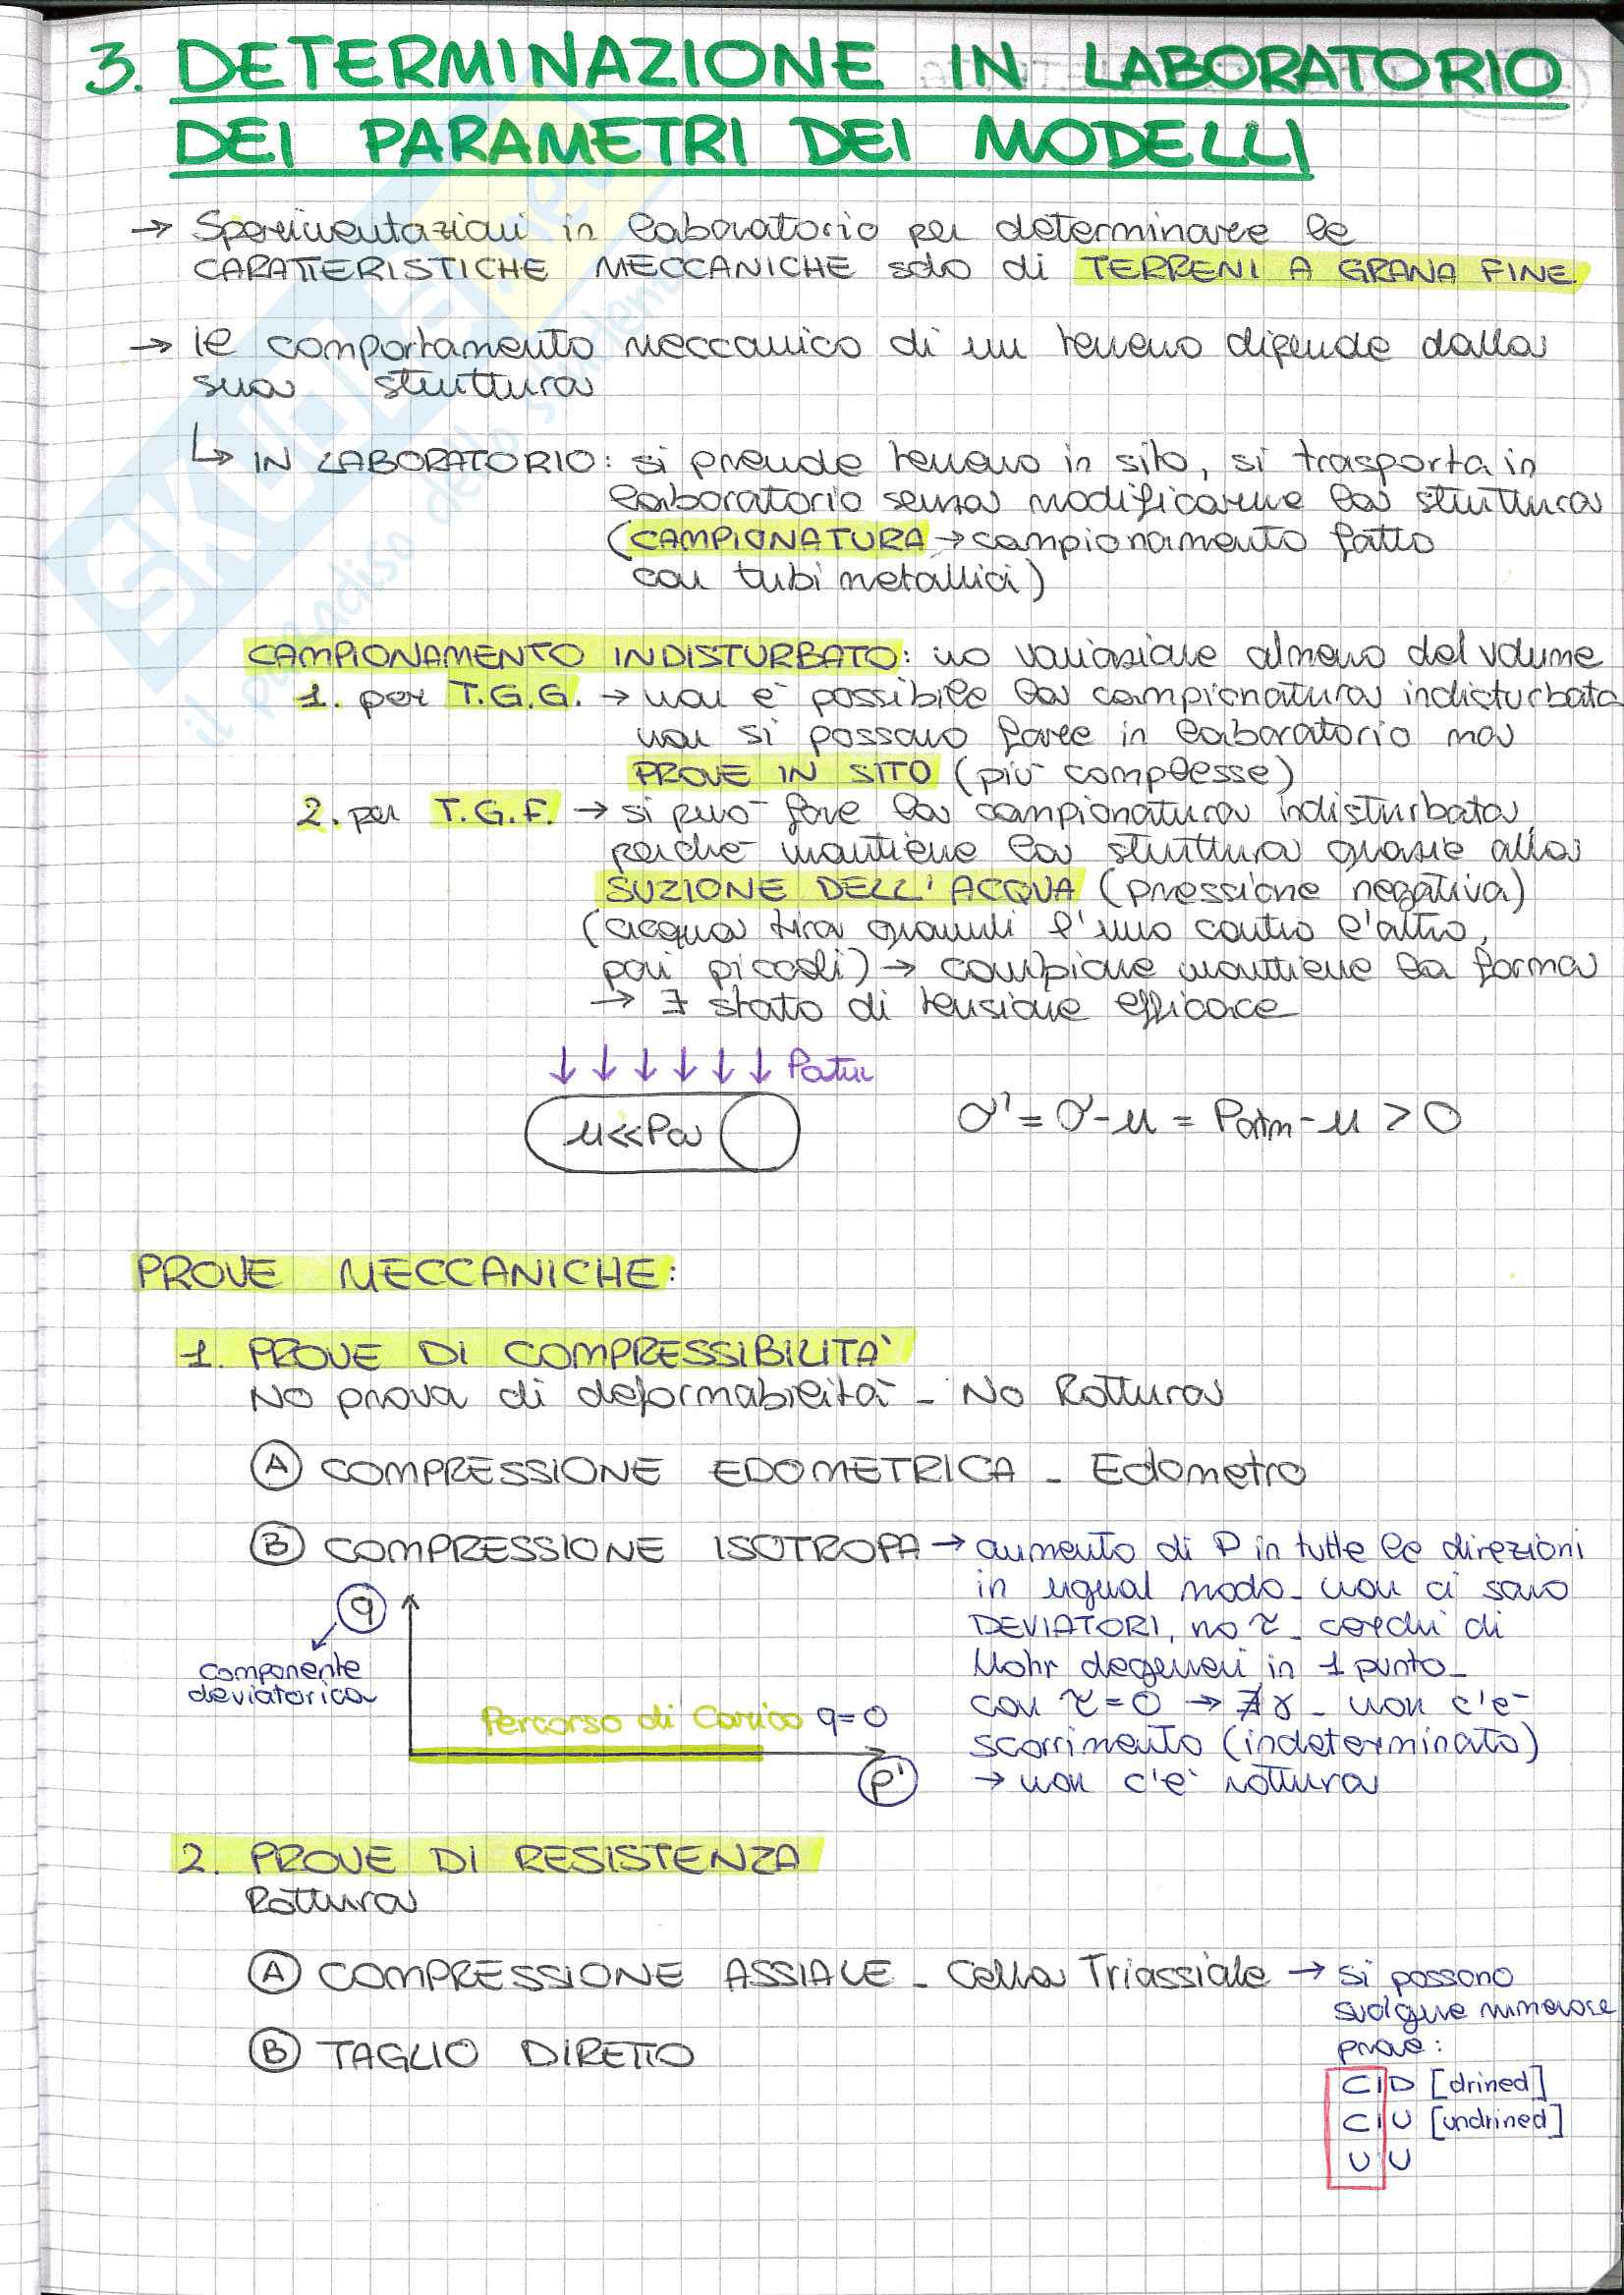 3. DETERMINAZIONE IN LABORATORIO
DEI PARAMETRI DEI MODELLI
→ Sperimentazioni in laboratorio per determinare le
CARATTERISTICHE MECCANICHE solo di TERRENI A GRANA FINE.
→ il comportamento meccanico di un terreno dipende dalla
sua struttura
↳ IN LABORATORIO: si prende terreno in sito, si trasporta in
laboratorio senza modificarne la struttura
(CAMPIONATURA → campionamento fatto
con tubi metallici)
CAMPIONAMENTO INDISTURBATO: no variazione almeno del volume
1. per T.G.G. → non è possibile la campionatura indisturbata
non si possono fare in laboratorio ma
PROVE IN SITO (più complesse)
2. per T.G.F. → si può fare la campionatura indisturbata,
perché mantiene la struttura grazie alla
SUZIONE DELL'ACQUA (pressione negativa)
(acqua tira granuli l'uno contro l'altro,
pori piccoli) → campione mantiene la forma
→ ∃ stato di tensione efficace
↓↓↓↓↓↓ Patm
u<<Pa
σ' = σ-u = Patm-u > 0
PROVE MECCANICHE:
1. PROVE DI COMPRESSIBILITA'
No prova di deformabilità - No Rottura
A COMPRESSIONE EDOMETRICA - Edometro
B COMPRESSIONE ISOTROPA → aumento di P in tutte le direzioni
in ugual modo - non ci sono
DEVIATORI, no τ - cerchi di
Mohr degeneri in 1 punto -
con τ=0 → ∄ γ - non c'è
scorrimento (indeterminato)
→ non c'è rottura
q
componente
deviatorica
Percorso di Carico q=0
p'
2. PROVE DI RESISTENZA
Rottura
A COMPRESSIONE ASSIALE - Cella Triassiale → si possono
svolgere numerose
prove:
B TAGLIO DIRETTO
CID [drined]
CIU [undrined]
UU
SKUOLA.net
il paradiso dello studente